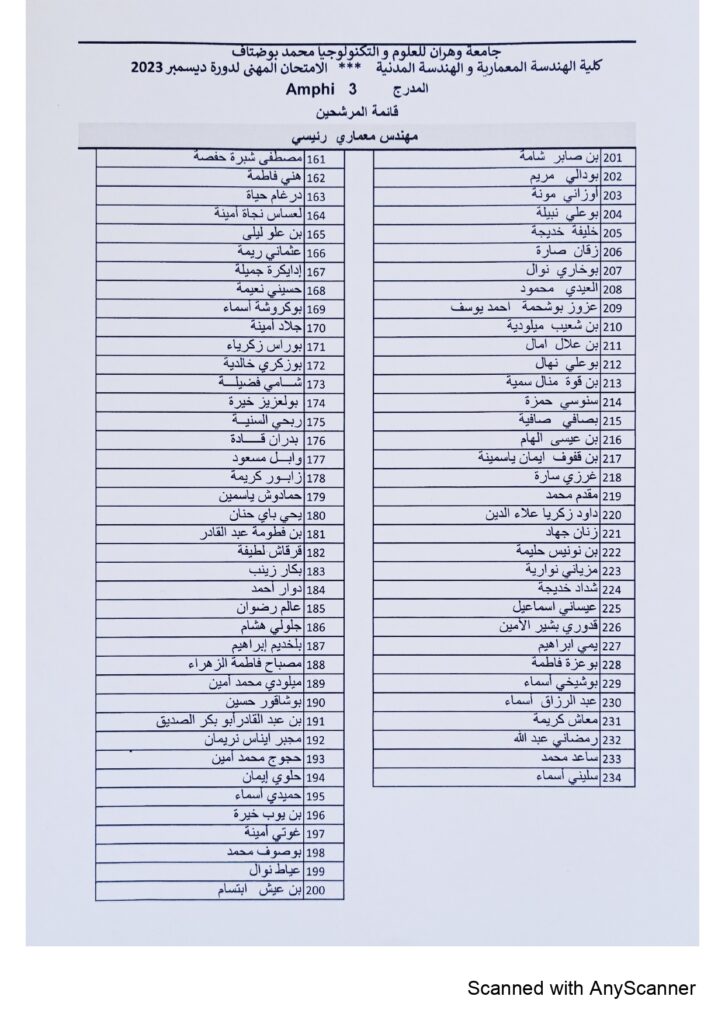 جامعة وهران للعلوم و التكنولوجيا محمد بوضياف
كلية الهندسة المعمارية و الهندسة المدنية *** الامتحان المهني لدورة ديسمبر 2023
المدرج Amphi 3
قائمة المرشحين
مهندس معماري رئيسي
161 مصطفى شبرة حفصة
162 هني فاطمة
163 درغام حياة
164 لعساس نجاة أمينة
165 بن علو ليلى
166 عثماني ريمة
167 إدايكرة جميلة
168 حسيني نعيمة
169 بوكروشة أسماء
170 جلاد أمينة
171 بوراس زكرياء
172 بوزكري خالدية
173 شامي فضيلة
174 بولعزيز خيرة
175 ربحي السنية
176 بدران قادة
177 وابل مسعود
178 زابور كريمة
179 حمادوش ياسمين
180 يحي باي حنان
181 بن فطومة عبد القادر
182 قرقاش لطيفة
183 بكار زينب
184 دوار أحمد
185 عالم رضوان
186 جلولي هشام
187 بلخديم إبراهيم
188 مصباح فاطمة الزهراء
189 ميلودي محمد أمين
190 بوشاقور حسين
191 بن عبد القادر أبو بكر الصديق
192 مجبر ايناس نريمان
193 حجوج محمد أمين
194 حلوي إيمان
195 حميدي أسماء
196 بن يوب خيرة
197 غوتي أمينة
198 بوصوف محمد
199 عياط نوال
200 بن عيش ابتسام
201 بن صابر شامة
202 بودالي مريم
203 أوزاني مونة
204 بوعلي نبيلة
205 خليفة خديجة
206 زقان صارة
207 بوخاري نوال
208 العيدي محمود
209 عزوز بوشحمة احمد يوسف
210 بن شعيب ميلودية
211 بن علال امال
212 بوعلي نهال
213 بن قوة منال سمية
214 سنوسي حمزة
215 بصافي صافية
216 بن عيسى الهام
217 بن قفوف ايمان ياسمينة
218 غرزي سارة
219 مقدم محمد
220 داود زكريا علاء الدين
221 زنان جهاد
222 بن نونيس حليمة
223 مزياني نوارية
224 شداد خديجة
225 عيساني اسماعيل
226 قدوري بشير الأمين
227 يمي ابراهيم
228 بوعزة فاطمة
229 بوشيخي أسماء
230 عبد الرزاق أسماء
231 معاش كريمة
232 رمضاني عبد الله
233 ساعد محمد
234 سليني أسماء
Scanned with AnyScanner